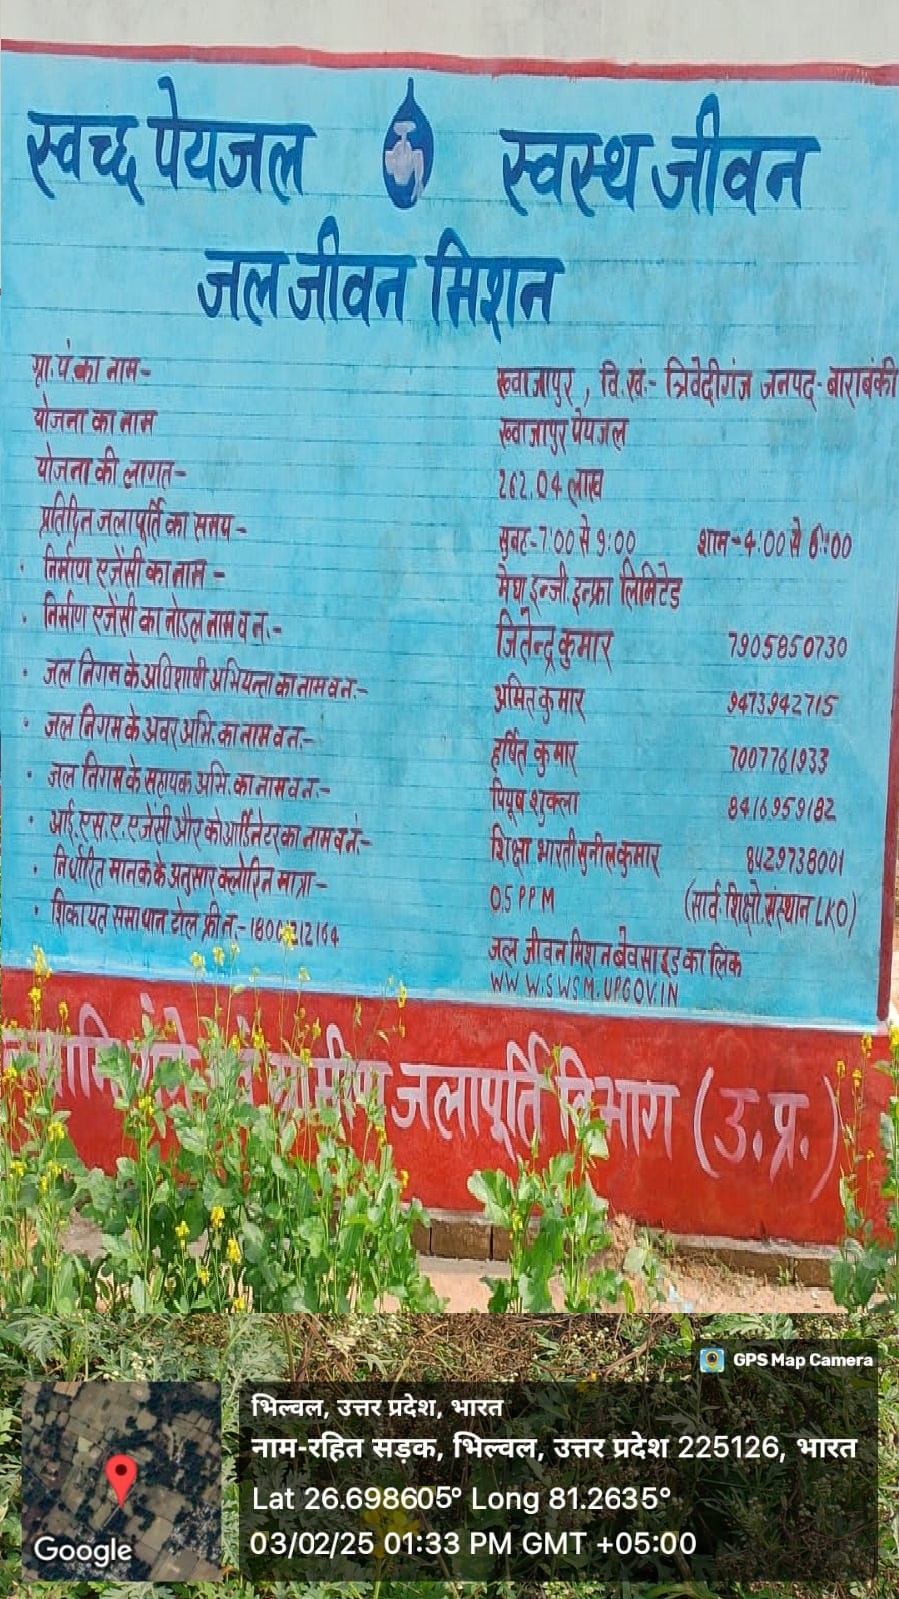 स्वच्छ पेयजल स्वस्थ जीवन
जल जीवन मिशन
ग्रा.पं.का नाम- ख्वाजापुर, वि.खं.- त्रिवेदीगंज जनपद- बाराबंकी
योजना का नाम ख्वाजापुर पेयजल
योजना की लागत- 262.04 लाख
प्रतिदिन जलापूर्ति का समय- सुबह-7:00 से 9:00 शाम-4:00 से 6:00
· निर्माण एजेंसी का नाम - मेघा इन्जी. इन्फ्रा लिमिटेड
· निर्माण एजेंसी का नोडल नाम व न.- जितेन्द्र कुमार 7905850730
· जल निगम के अधिशाषी अभियन्ता का नाम व न.- अमित कुमार 9473942715
· जल निगम के अवर अभि. का नाम व न.- हर्षित कुमार 7007761933
· जल निगम के सहायक अभि. का नाम व न.- पियूष शुक्ला 8416959182
· आई.एस.ए. एजेंसी और कोआर्डिनेटर का नाम व नं.- शिक्षा भारती सुनील कुमार 8429738001
· निर्धारित मानक के अनुसार क्लोरिन मात्रा- 0.5 PPM (सार्व. शिक्षो. संस्थान LKO)
· शिकायत समाधान टोल फ्री न.-
जल जीवन मिशन बेवसाइड का लिंक
WWW.SWSM.UPGOV.IN
ग्रामीण जलापूर्ति विभाग (उ.प्र.)
GPS Map Camera
भिल्वल, उत्तर प्रदेश, भारत
नाम-रहित सड़क, भिल्वल, उत्तर प्रदेश 225126, भारत
Lat 26.698605° Long 81.2635°
03/02/25 01:33 PM GMT +05:00
Google